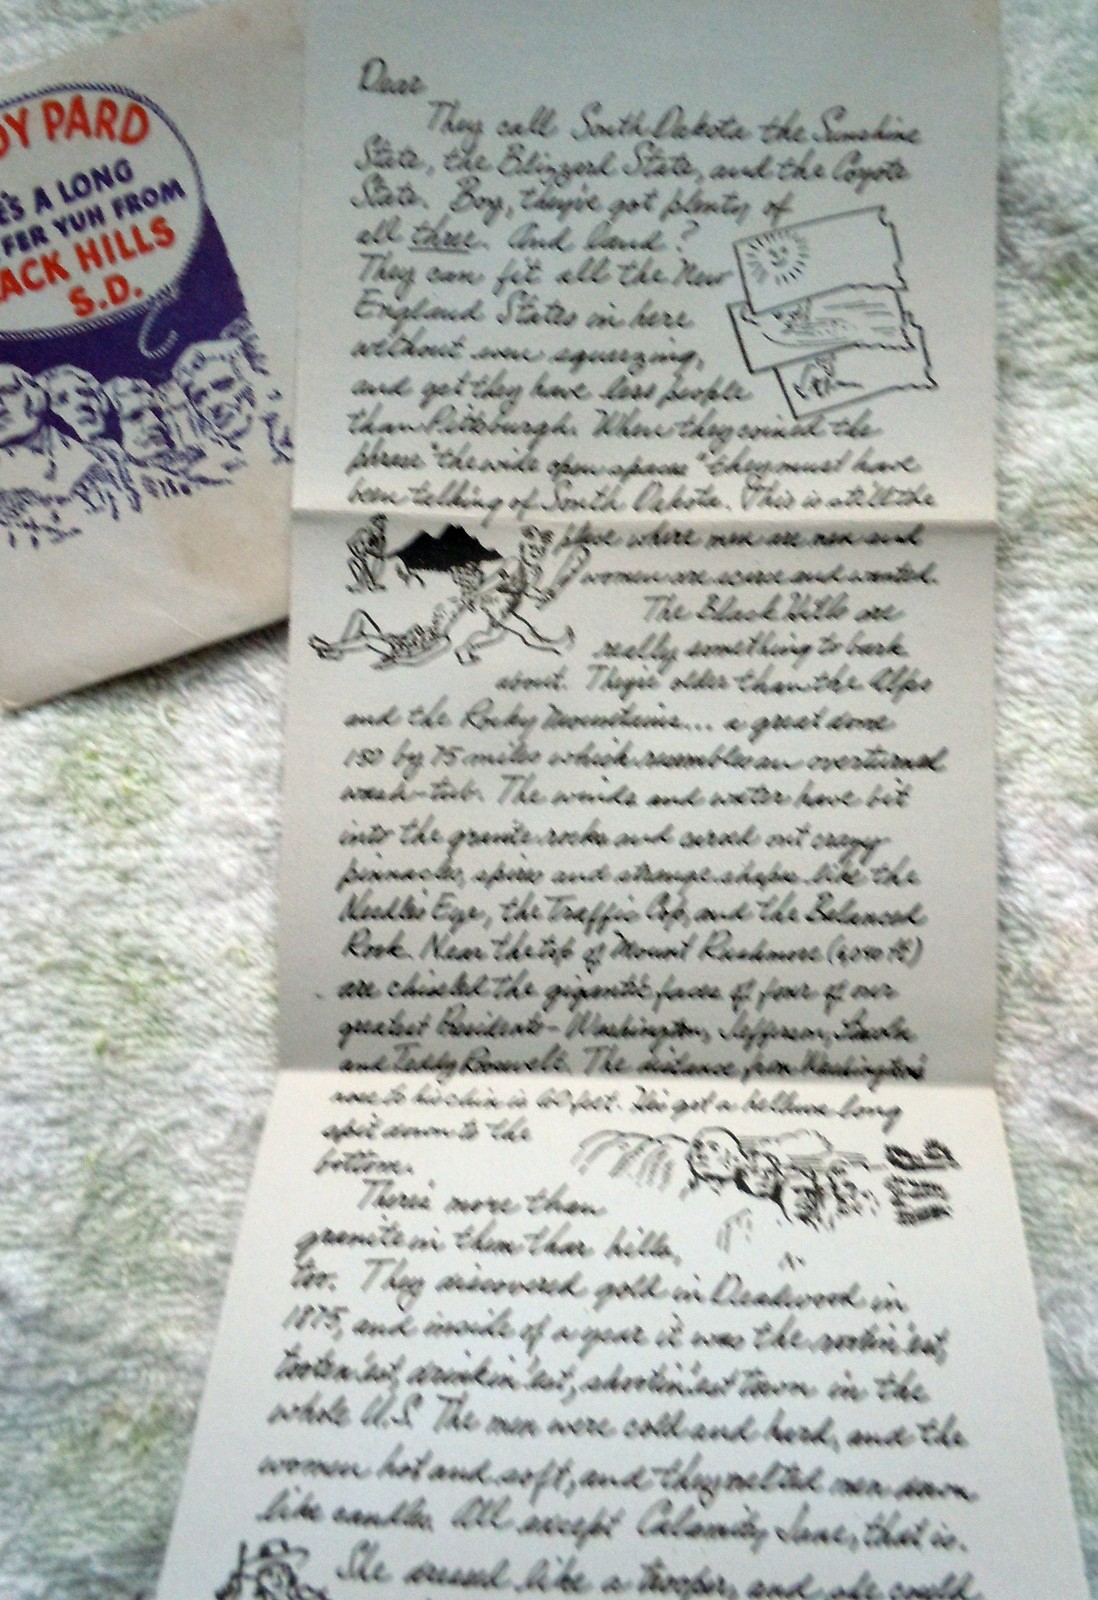 DY PARD
E'S A LONG
FER YUH FROM
ACK HILLS
S.D.
Dear
They call South Dakota the Sunshine
State, the Blizzard State, and the Coyote
State. Boy, they've got plenty of
all three. And land?
They can fit all the New
England States in here
without even squeezing,
and yet they have less people
than Pittsburgh. When they coined the
phrase "the wide open spaces" they must have
been talking of South Dakota. This is still the
place where men are men and
women are scarce and wanted.
The Black Hills are
really something to bark
about. They're older than the Alps
and the Rocky Mountains... a great dome
150 by 75 miles which resembles an overturned
wash-tub. The winds and water have bit
into the granite rocks and carved out crazy
pinnacles, spires and strange shapes like the
Needle's Eye, the Traffic Cop, and the Balanced
Rock. Near the top of Mount Rushmore
are chiseled the gigantic faces of four of our
greatest Presidents - Washington, Jefferson, Lincoln
and Teddy Roosevelt. The distance from Washington's
nose to his chin is 60 feet. He's got a helluva long
spit down to the
bottom.
There's more than
granite in them thar hills,
too. They discovered gold in Deadwood in
1875, and inside of a year it was the rootin'est,
tooten'est, drinkin'est, shootin'est town in the
whole U.S. The men were cold and hard, and the
women hot and soft, and they melted men down
like candles. All except Calamity Jane, that is.
She dressed like a trooper, and she could